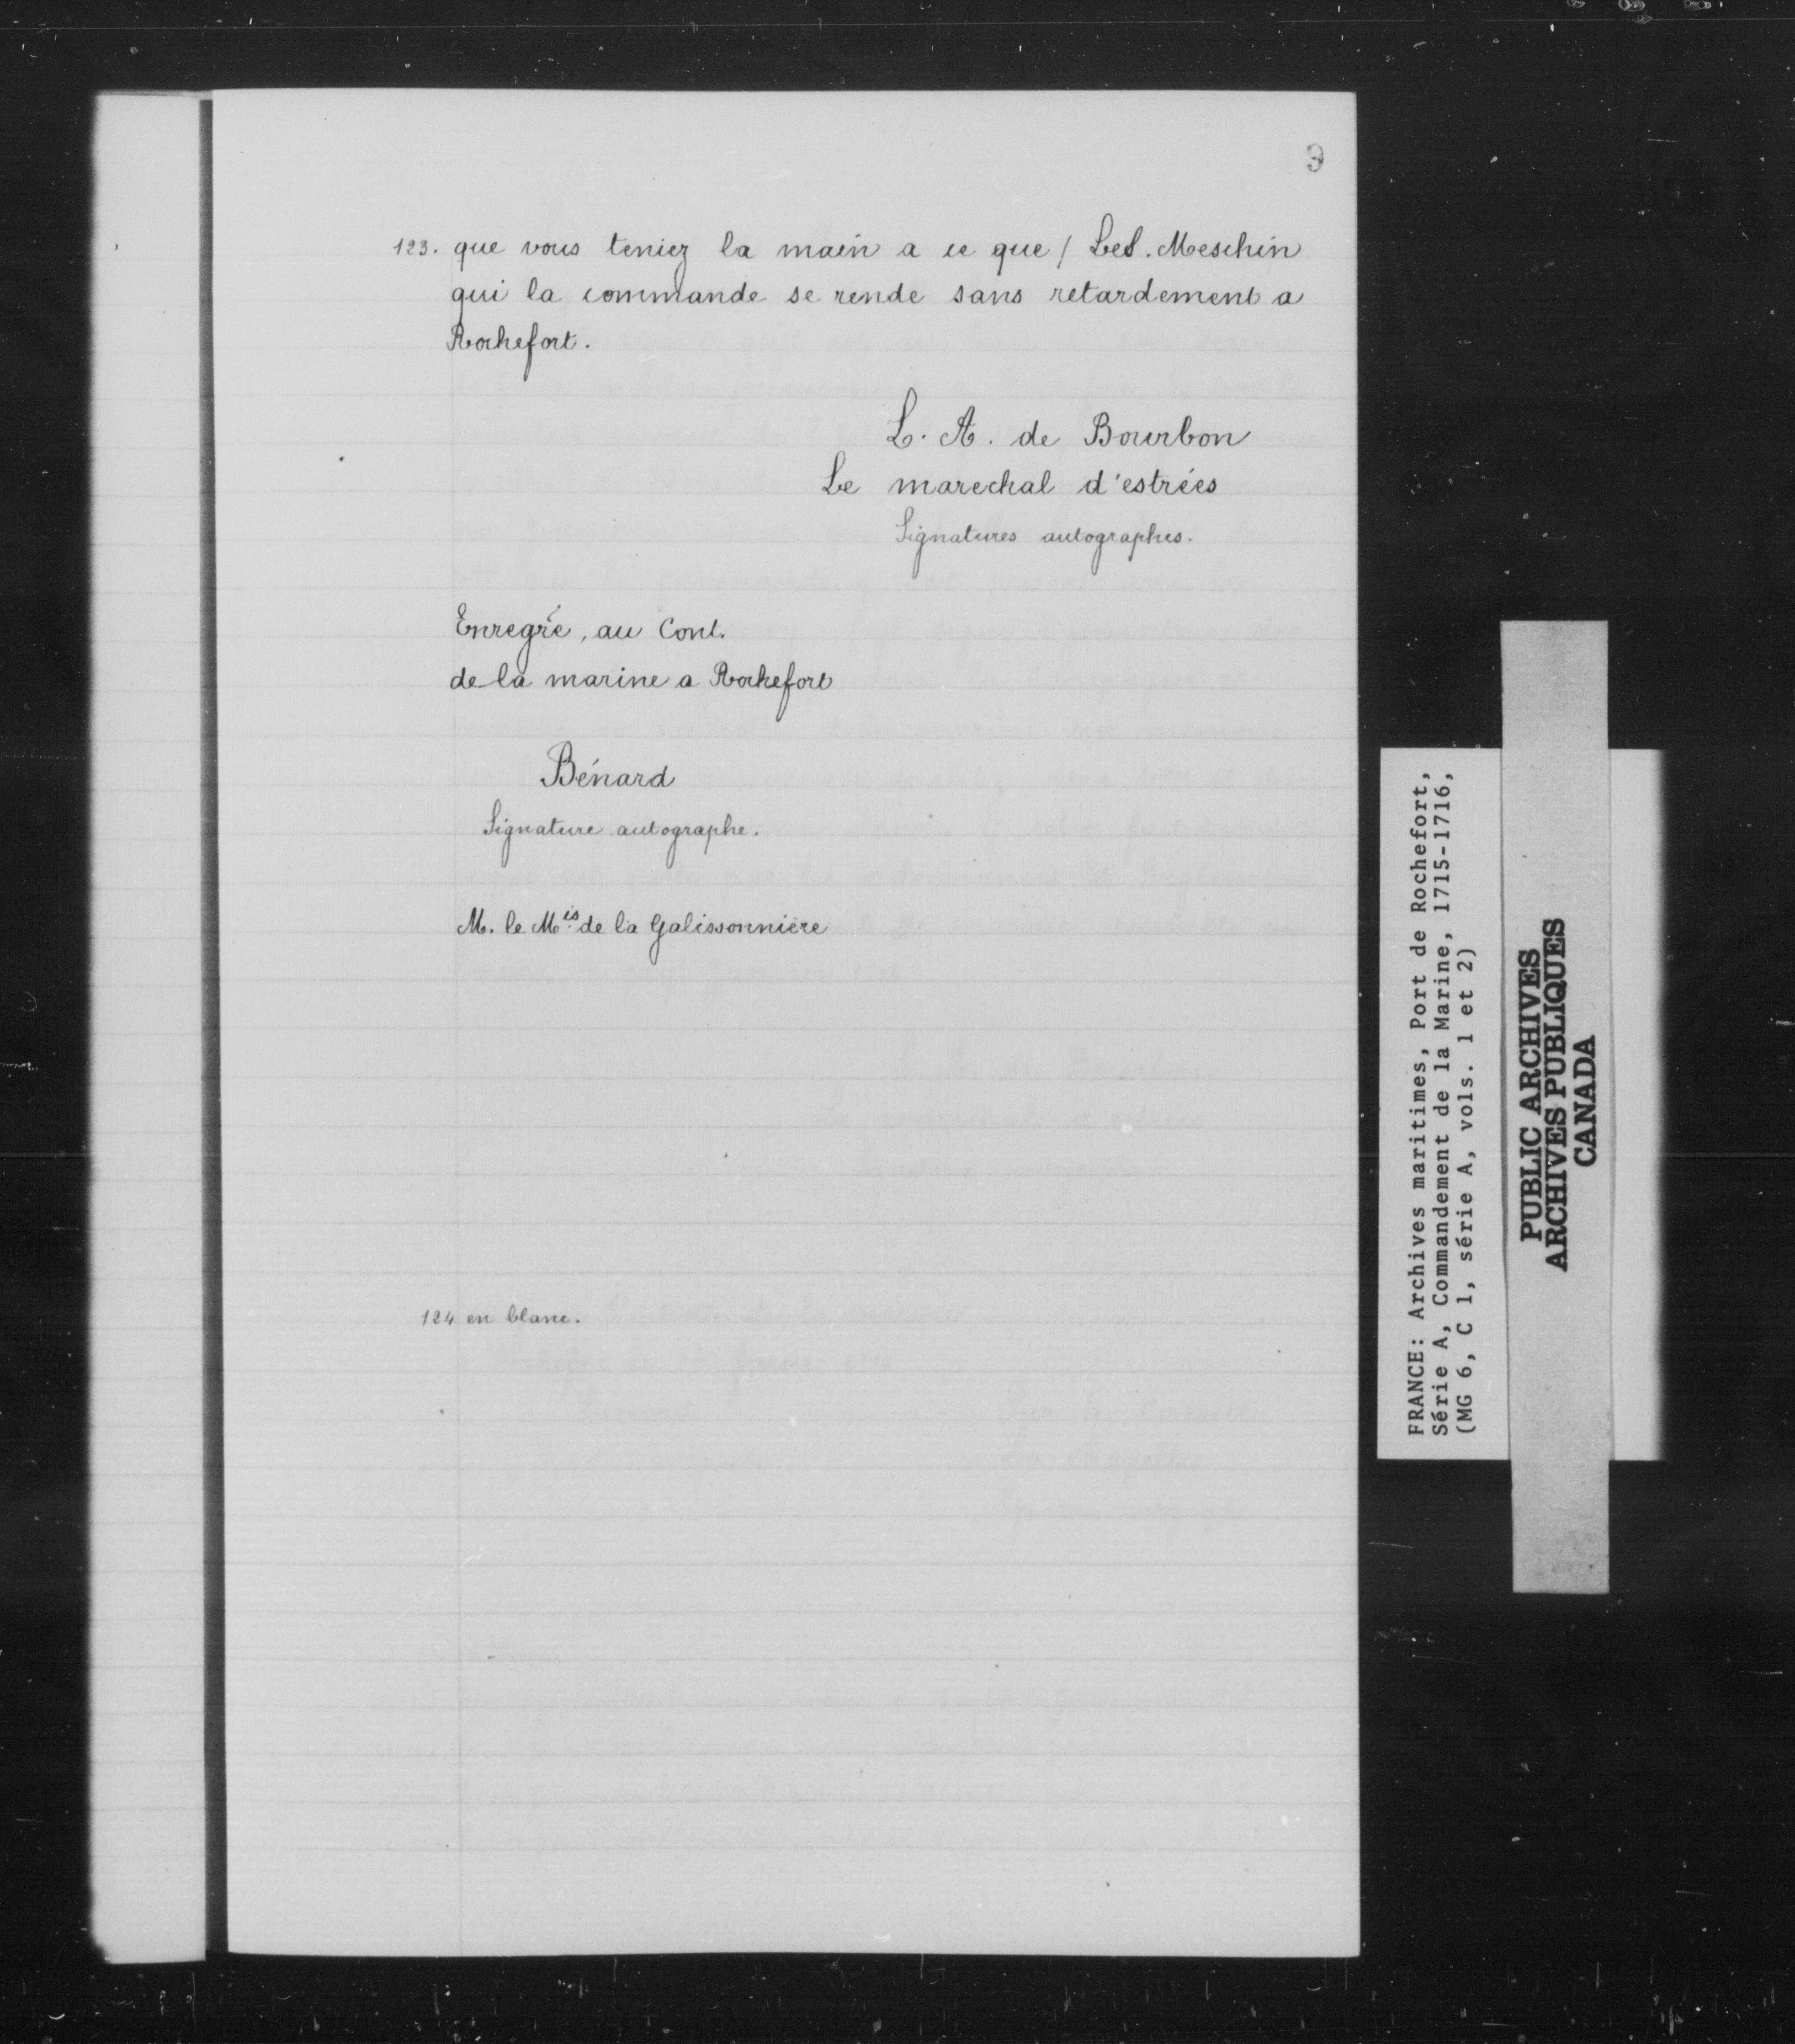 9
123. que vous teniez la main a ce que / Le S. Meschin
qui la commande se rende sans retardement a
Rochefort.
L. A. de Bourbon
Le marechal d'estrées
Signatures autographes.
Enregré, au Cont.
de la marine a Rochefort
Bénard
Signature autographe.
M. le Mis. de la Galissonnière
124 en blanc.
FRANCE: Archives maritimes, Port de Rochefort,
Série A, Commandement de la Marine, 1715-1716,
(MG 6, C 1, série A, vols. 1 et 2)
PUBLIC ARCHIVES
ARCHIVES PUBLIQUES
CANADA